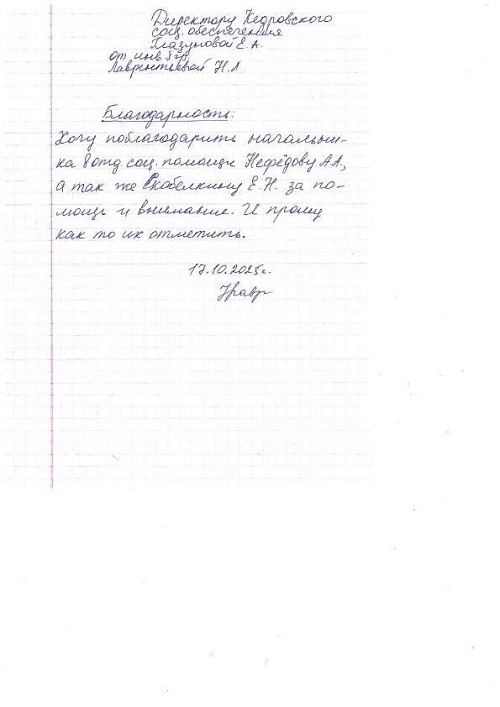 Директору Кедровского
соц. обеспечения
Глазуновой Е.А.
от инв. 3 гр.
Лаврентьевой Н.Л.
Благодарность:
Хочу поблагодарить начальни-
ка 8 отд. соц. помощи Нефёдову А.А.,
а так же Скобелкину Е.Н. за по-
мощь и внимание. И прошу
как то их отметить.
17.10.2025г.